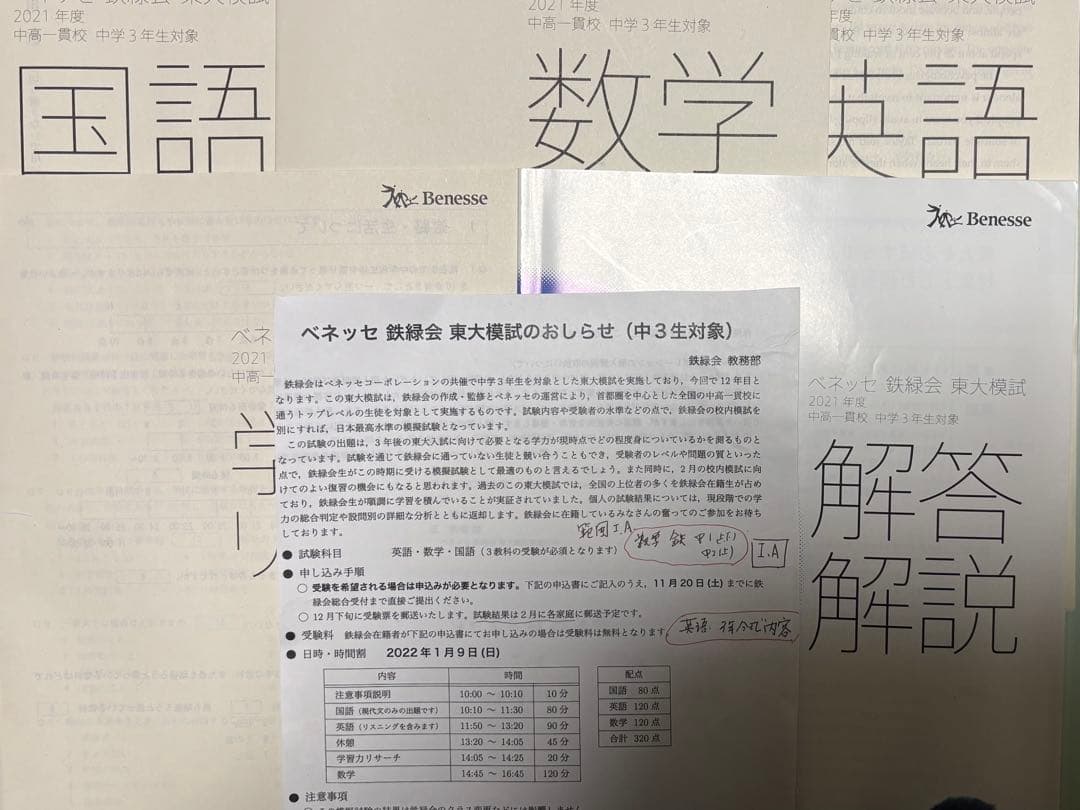 ベネッセ 鉄緑会 東大模試
2021年度
中高一貫校 中学3年生対象
国語
2021年度
中高一貫校 中学3年生対象
数学
年度
中高一貫校 中学3年生対象
英語
Benesse
Benesse
ベネ
2021
中高一
学
ベネッセ 鉄緑会 東大模試
2021年度
中高一貫校 中学3年生対象
解答
解説
ベネッセ 鉄緑会 東大模試のおしらせ（中３生対象）
鉄緑会 教務部
鉄緑会はベネッセコーポレーションの共催で中学３年生を対象とした東大模試を実施しており、今回で12年目と
なります。この東大模試は、鉄緑会の作成・監修とベネッセの運営により、首都圏を中心とした全国の中高一貫校に
通うトップレベルの生徒を対象として実施するものです。試験内容や受験者の水準などの点で、鉄緑会の校内模試を
別にすれば、日本最高水準の模擬試験となっています。
この試験の出題は、３年後の東大入試に向けて必要となる学力が現時点でどの程度身についているかを測るものと
なっています。試験を通じて鉄緑会に通っていない生徒と競い合うこともでき、受験者のレベルや問題の質といった
点で、鉄緑会生がこの時期に受ける模擬試験として最適のものと言えるでしょう。また同時に、２月の校内模試に向
けてのよい復習の機会にもなると思われます。過去のこの東大模試では、全国の上位者の多くを鉄緑会在籍生が占め
ており、鉄緑会生が順調に学習を積んでいることが実証されていました。個人の試験結果については、現段階での学
力の総合判定や設問別の詳細な分析とともに返却します。鉄緑会に在籍しているみなさんの奮ってのご参加をお待ち
しております。
範囲I.A
数学 鉄 中1
I.A
● 試験科目 英語・数学・国語（３教科の受験が必須となります）
● 申し込み手順
○ 受験を希望される場合は申込みが必要となります。下記の申込書にご記入のうえ、11月20日(土)までに鉄
緑会総合受付まで直接ご提出ください。
○ 12月下旬に受験票を郵送いたします。試験結果は２月に各家庭に郵送予定です。
● 受験料 鉄緑会在籍者が下記の申込書にてお申し込みの場合は受験料は無料となります。
英語. 内容
● 日時・時間割 2022年1月9日(日)
内容 時間
注意事項説明 10:00 ～ 10:10 10分
国語（現代文のみの出題です） 10:10 ～ 11:30 80分
英語（リスニングを含みます） 11:50 ～ 13:20 90分
休憩 13:20 ～ 14:05 45分
学習力リサーチ 14:05 ～ 14:25 20分
数学 14:45 ～ 16:45 120分
配点
国語 80点
英語 120点
数学 120点
合計 320点
● 注意事項